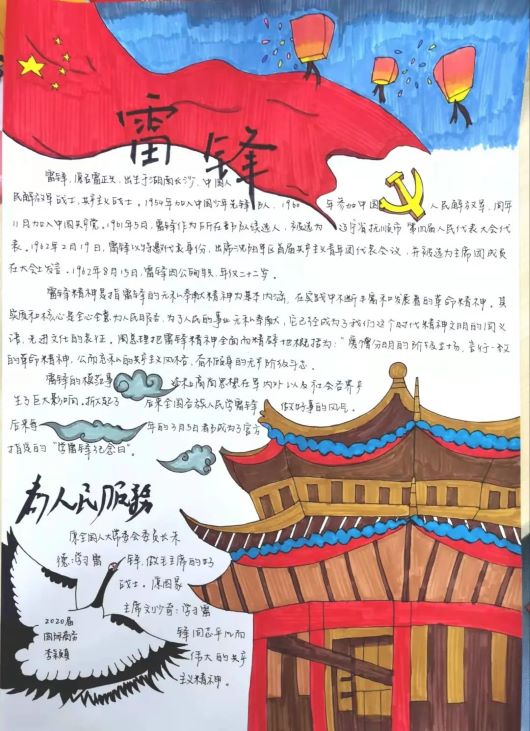 雷锋
雷锋，原名雷正兴，出生于湖南长沙，中国人
民解放军战士，共产主义战士。1954年加入中国少年先锋队，1960年参加中国人民解放军，同年
11月加入中国共产党。1961年5月，雷锋作为所在部队候选人，被选为辽宁省抚顺市第四届人民代表大会代
表。1962年2月19日，雷锋以特邀代表身份，出席沈阳军区首届共产主义青年团代表会议，并被选为主席团成员
在大会上发言。1962年8月15日，雷锋因公殉职，年仅二十二岁。
雷锋精神是指雷锋的无私奉献精神为基本内涵，在实践中不断丰富和发展着的革命精神。其
实质和核心是全心全意为人民服务，为了人民的事业无私奉献，它已经成为了我们这个时代精神文明的同义
语，先进文化的表征。周恩来把雷锋精神全面而精辟地概括为：“憎爱分明的阶级立场，言行一致
的革命精神，公而忘私的共产主义风格，奋不顾身的无产阶级斗志。
雷锋的模范事 高尚思想在军内外以及社会各界产
生了巨大影响，折 后来全国各族人民学雷锋 做好事的风气。
后来每 年的3月5日都成为了官方
指度的“学雷锋纪念日”。
为人民服務
原全国人大常委会委员长朱
德：学习雷锋，做毛主席的好
战士。原国家
主席刘少奇：学习雷
锋同志平凡而
伟大的共产
主义精神。
2020届
国际商务